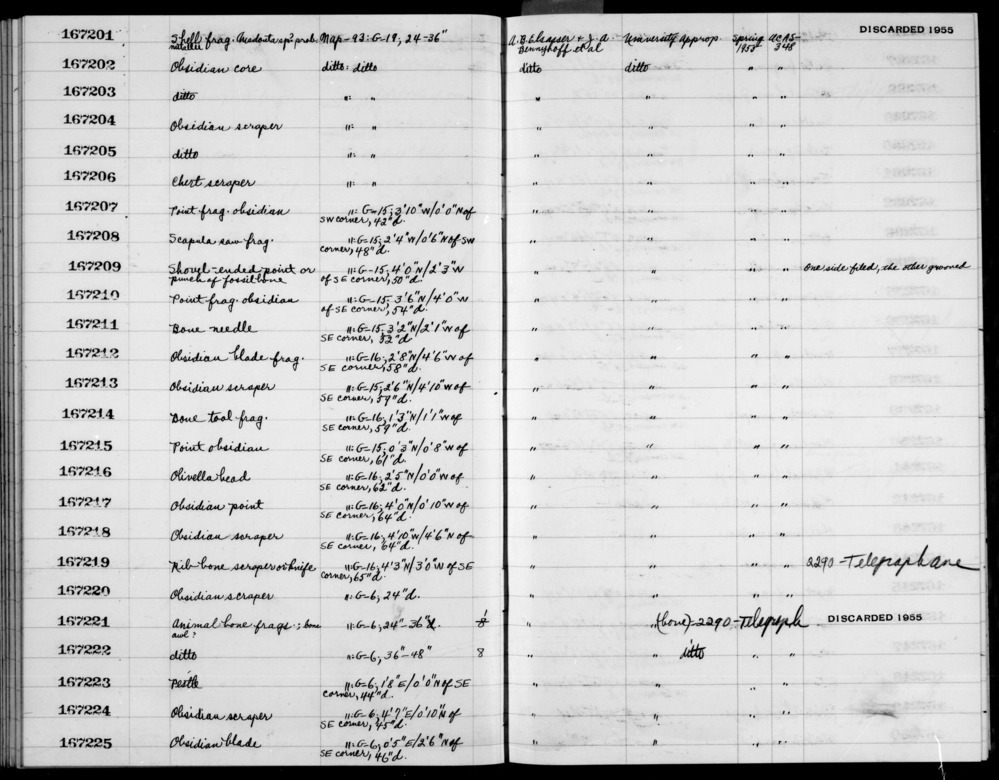 167201 Shell frag. Anodonta sp? prob. Nap-93: G-19, 24-36" A.B. Elsasser & J.A. University approp. Spring ACAS- DISCARDED 1955
Bennyhoff et al 1953 348
167202 Obsidian core ditto: ditto ditto ditto " "
167203 ditto ": " " " " "
167204 Obsidian scraper ": " " " " "
167205 ditto ": " " " " "
167206 Chert scraper ": " " " " "
167207 Point frag. obsidian ": G-15; 3'10"W/0'0"N of " " " "
SW corner, 42"d.
167208 Scapula saw frag. ": G-15; 2'4"W/0'6"N of SW " " " "
corner, 48"d.
167209 Shovel-ended point or ": G-15, 4'0"N/2'3"W " " " " One side filed, the other grooved
punch of fossil bone of SE corner, 50"d.
167210 Point frag. obsidian ": G-15, 3'6"N/4'0"W " " " "
of SE corner, 54"d.
167211 Bone needle ": G-15, 3'2"N/2'1"W of " " " "
SE corner, 52"d.
167212 Obsidian blade frag. ": G-16; 2'8"N/4'6"W of " " " "
SE corner, 58"d.
167213 Obsidian scraper ": G-15; 2'6"N/4'10"W of " " " "
SE corner, 59"d.
167214 Bone tool frag. ": G-16, 1'3"N/1'1"W of " " " "
SE corner, 59"d.
167215 Point obsidian ": G-15; 0'3"N/0'8"W of " " " "
SE corner, 61"d.
167216 Olivella bead ": G-16; 2'5"N/0'0"W of " " " "
SE corner, 62"d.
167217 Obsidian point ": G-16; 4'0"N/0'10"W of " " " "
SE corner, 64"d.
167218 Obsidian scraper ": G-16; 4'10"W/4'6"N of " " " "
SE corner, 64"d.
167219 Rib-bone scraper or knife ": G-16, 4'3"N/3'0"W of SE " " " " 2290-Telegraph ave
corner, 65"d.
167220 Obsidian scraper ": G-6, 24"d. " " " "
167221 Animal bone frags; bone ": G-6; 24"-36"d. 1 8 " " (bone)-2290-Telegraph DISCARDED 1955
awl?
167222 ditto ": G-6, 36"-48" 8 " " ditto " "
167223 Pestle ": G-6; 1'8"E/0'0"N of SE " " " "
corner, 44"d.
167224 Obsidian scraper ": G-6, 4'7"E/0'10"N of " " " "
SE corner, 45"d.
167225 Obsidian blade ": G-6; 0'5"E/2'6"N of " " " "
SE corner, 46"d.